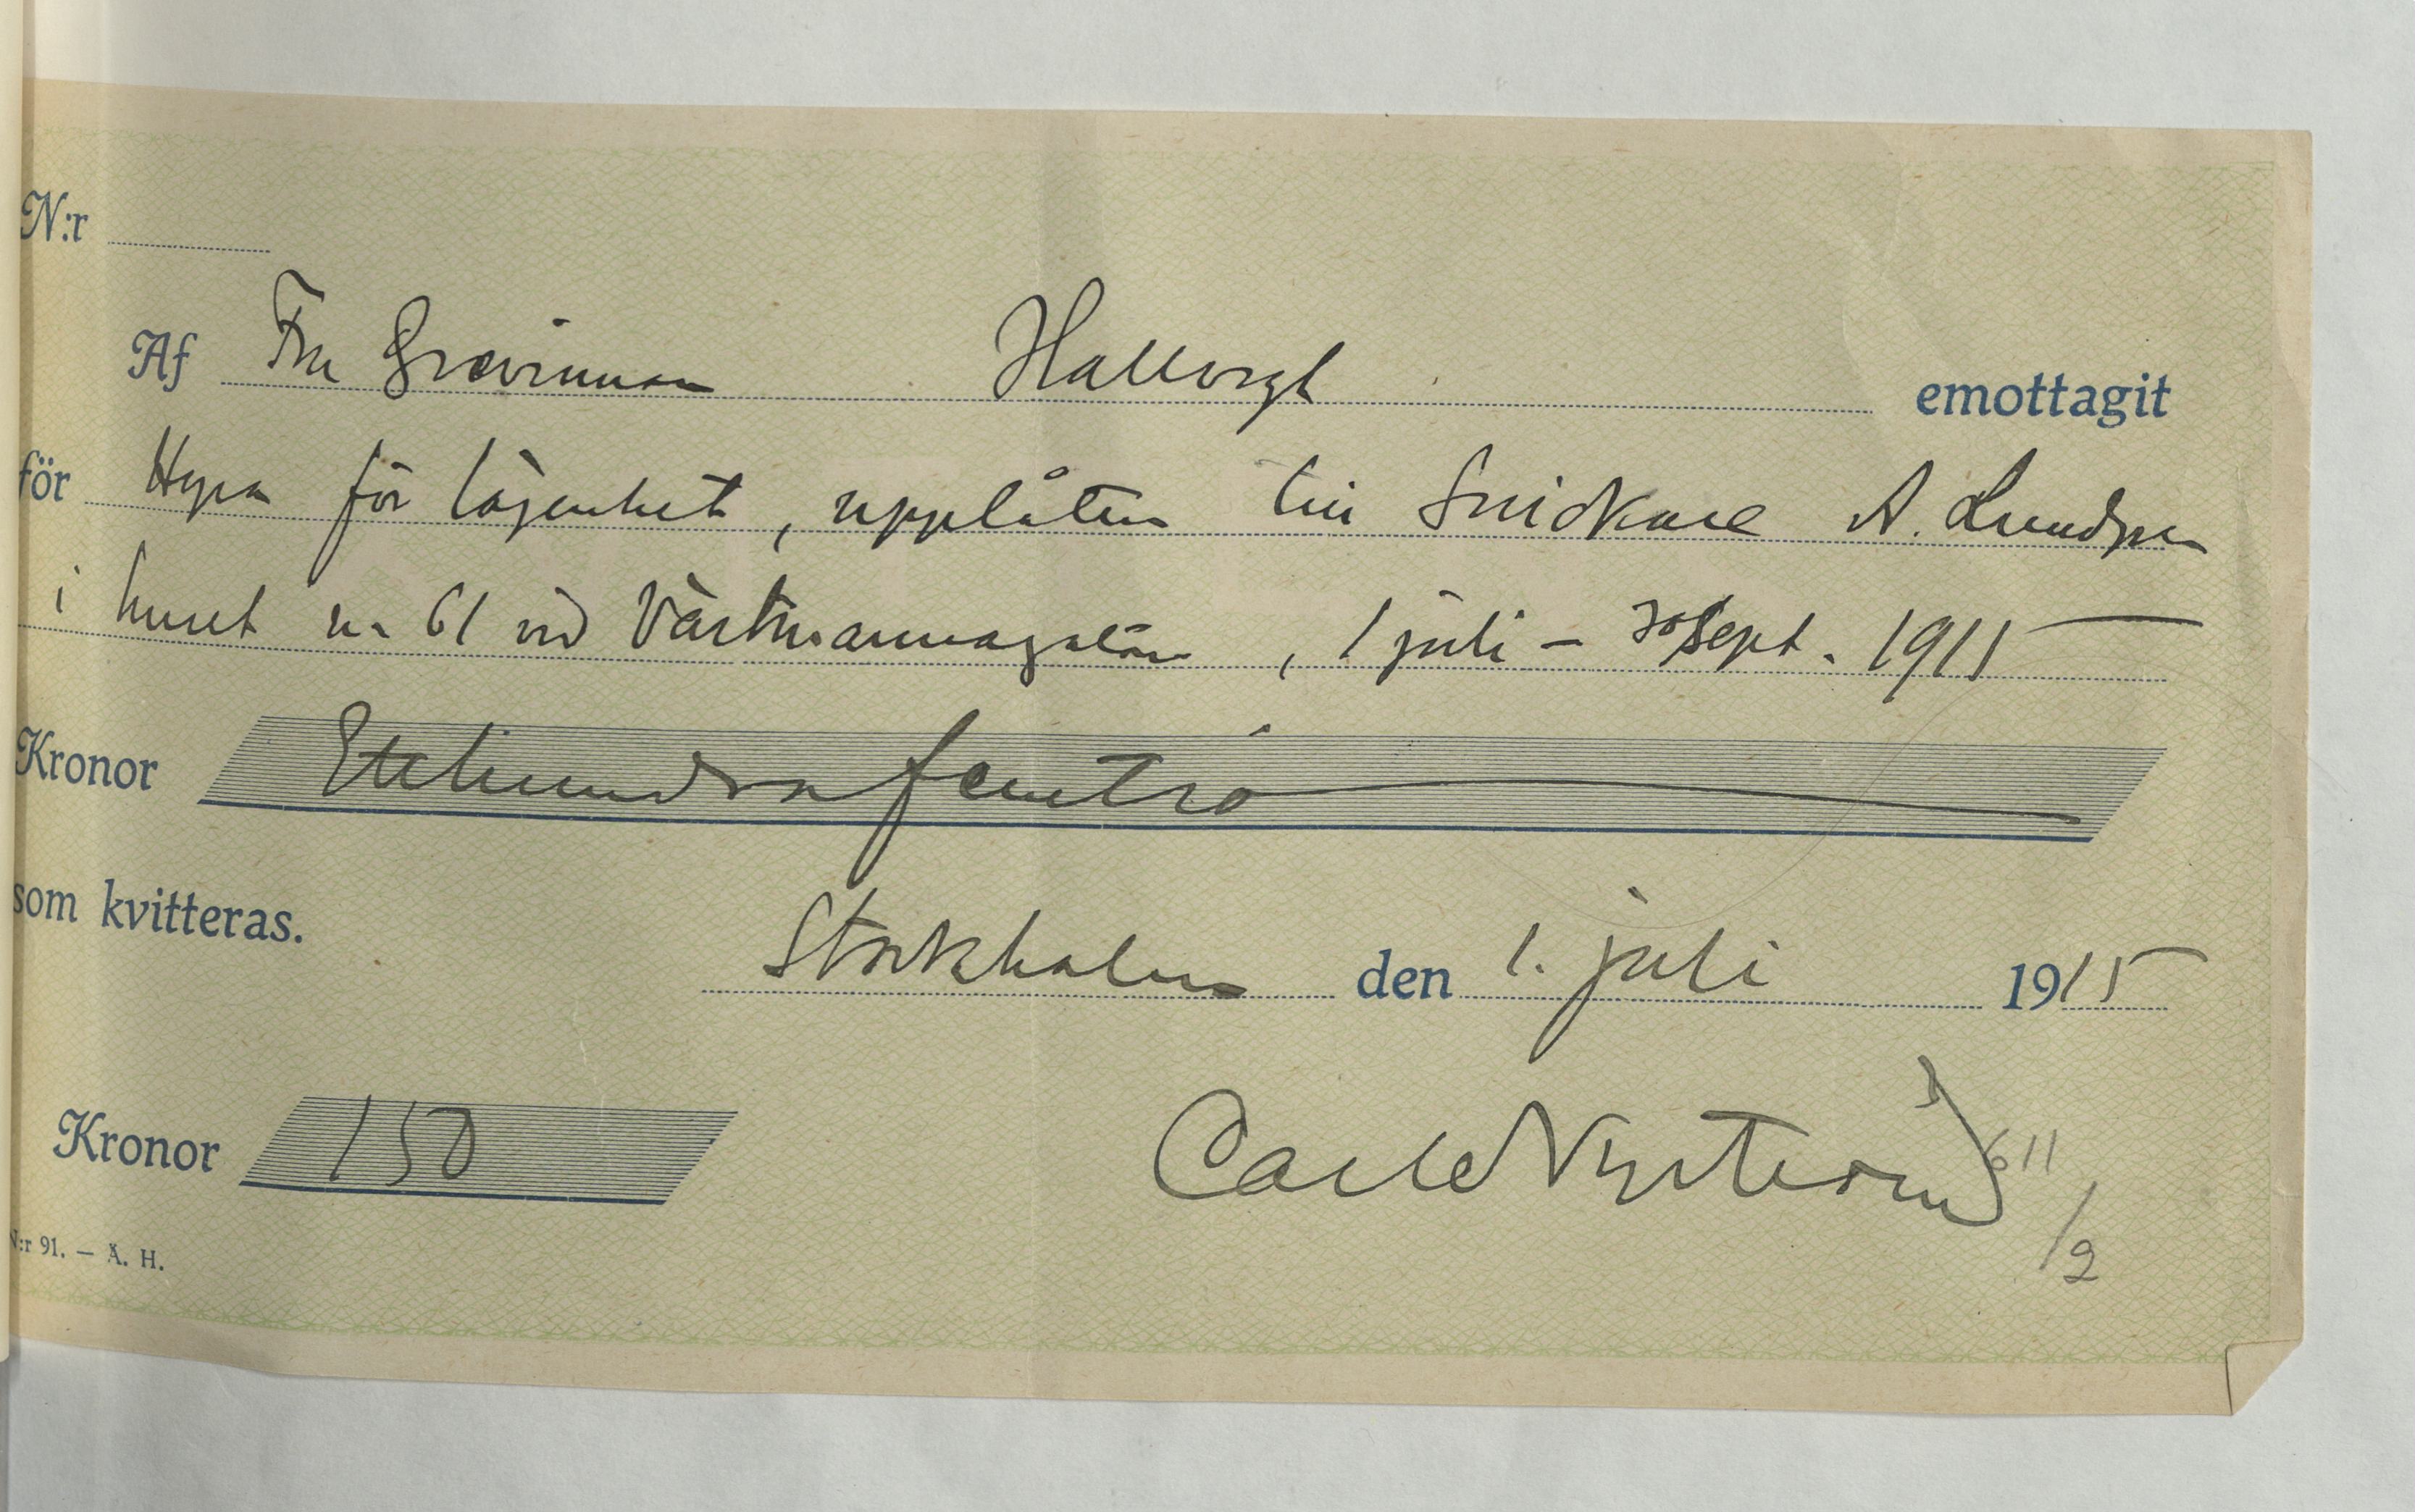 N:r
Af Fru Grevinnan Hallwyl emottagit
för Hyra för lägenhet, upplåten till Snickare A. Lundgren
i huset no 61 vid Västmannagatan, 1 juli – 30 Sept. 1915
Kronor Etthundrafemtio
som kvitteras.
Stockholm den 1. juli 1915
Kronor 150
Carl Nyström
611
/2
N:r 91. — Ä. H.